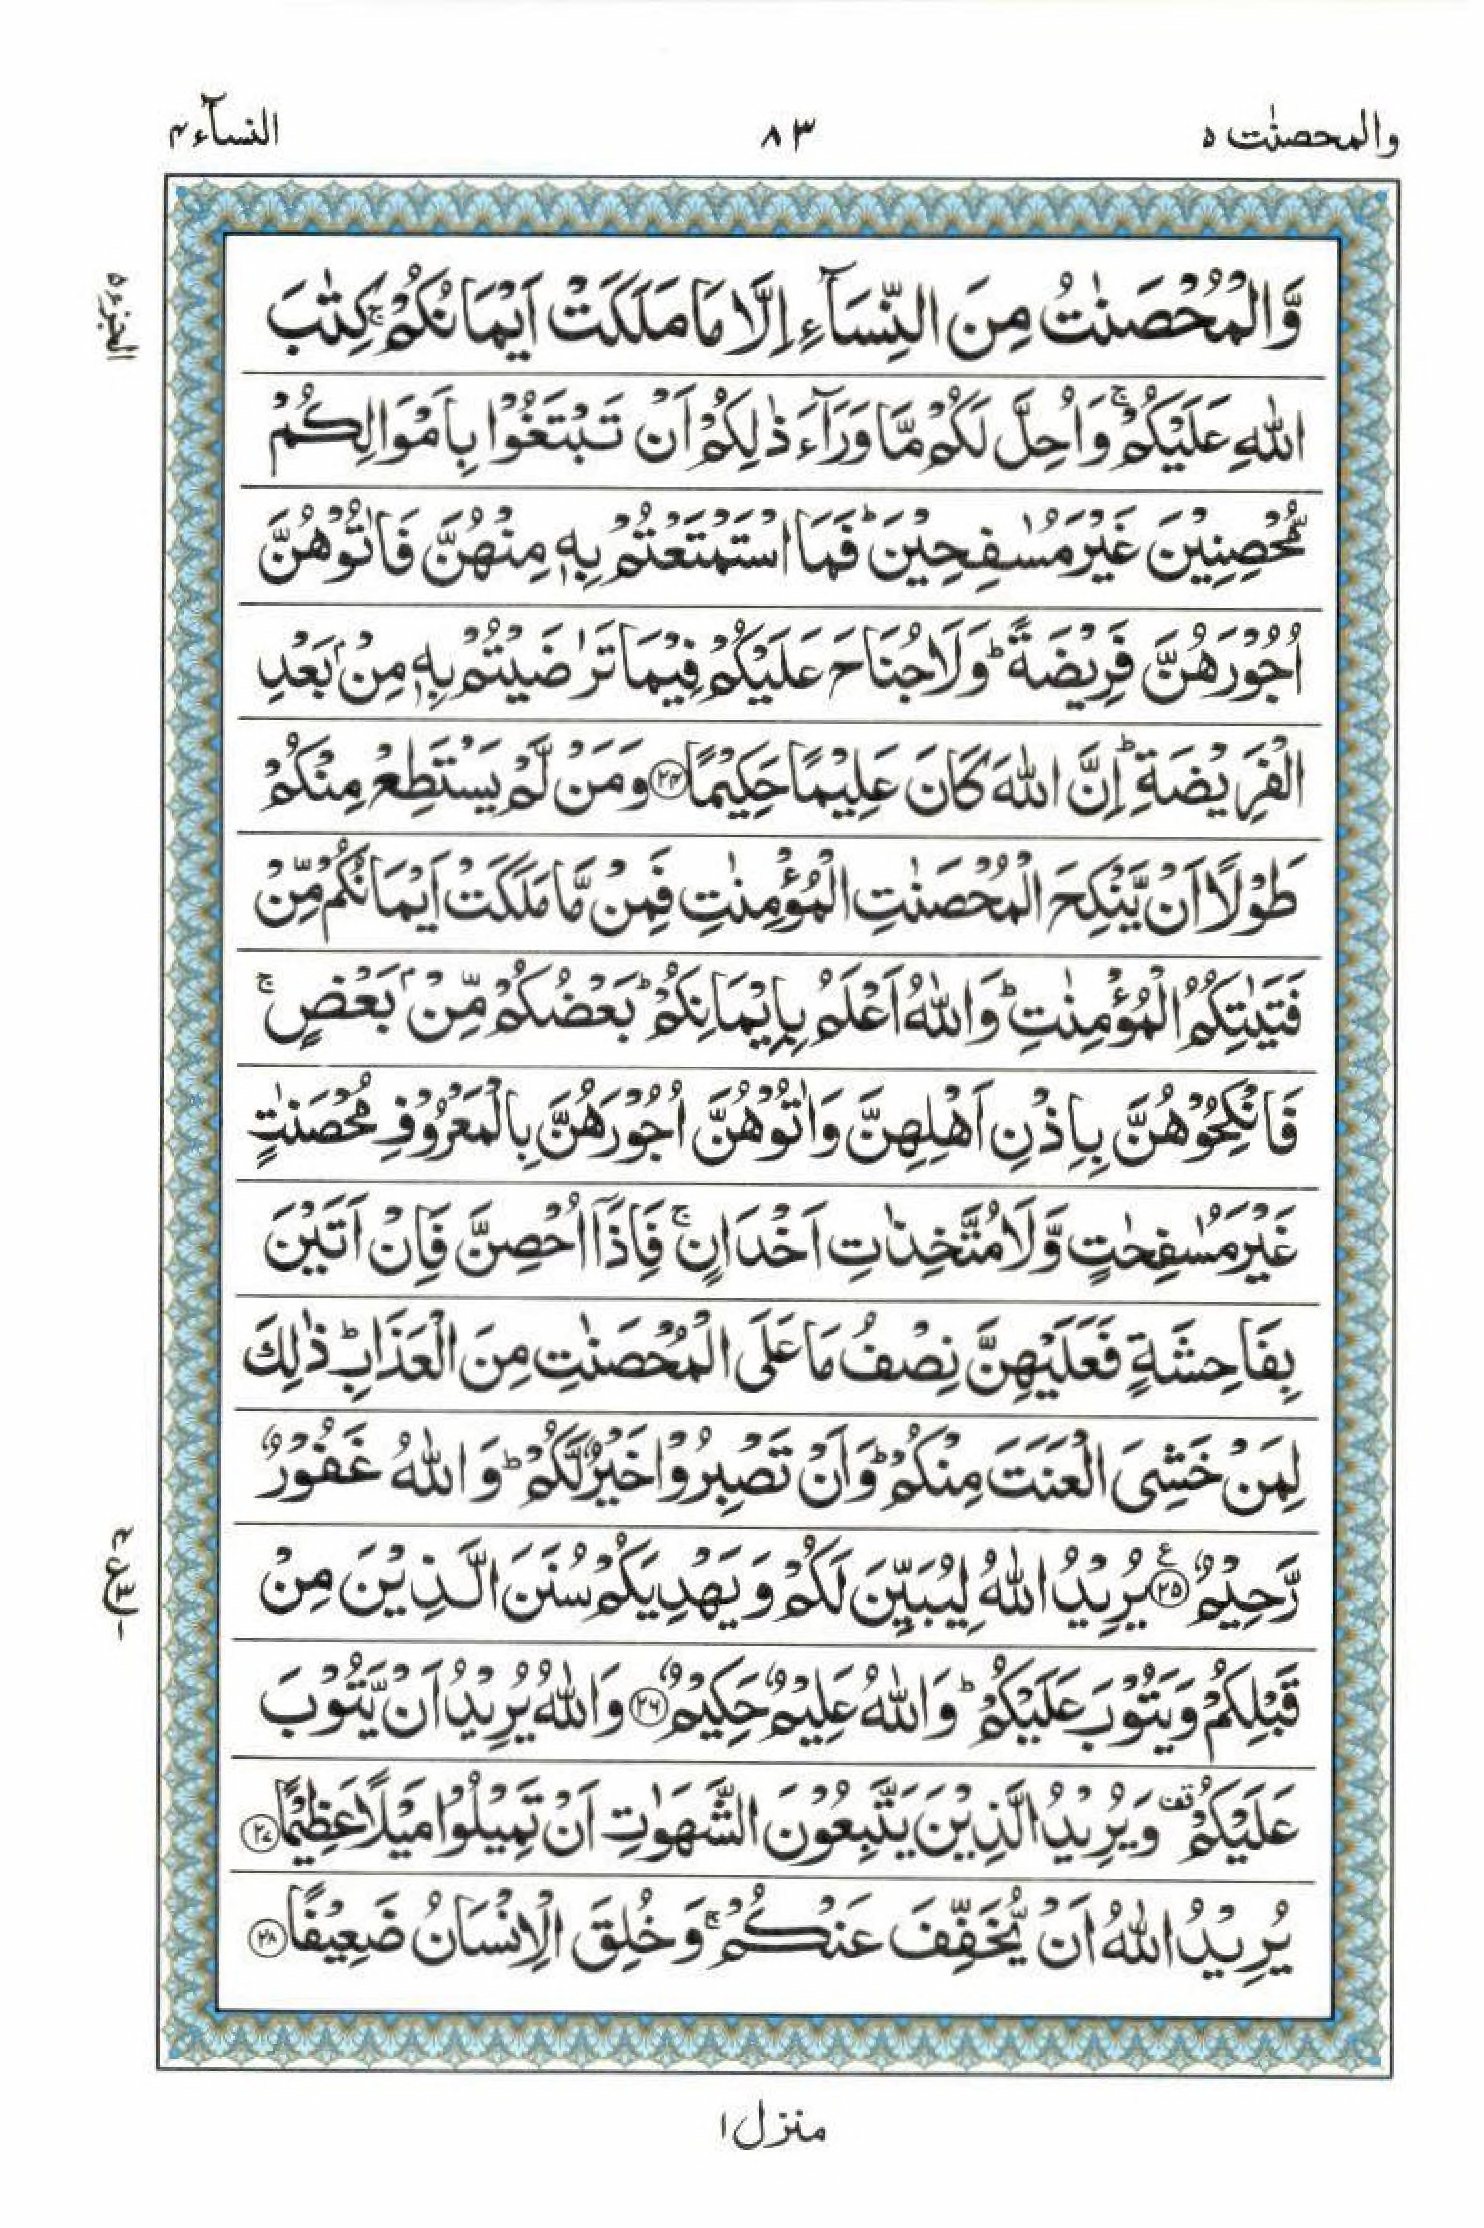 والمحصنٰت ۵
۸۳
النسآء ۴
الجزء ۵
وَّالْمُحْصَنٰتُ مِنَ النِّسَآءِ اِلَّا مَا مَلَكَتْ اَيْمَانُكُمْ ۚ كِتٰبَ
اللّٰهِ عَلَيْكُمْ ۚ وَاُحِلَّ لَكُمْ مَّا وَرَآءَ ذٰلِكُمْ اَنْ تَبْتَغُوْا بِاَمْوَالِكُمْ
مُّحْصِنِيْنَ غَيْرَ مُسٰفِحِيْنَ ؕ فَمَا اسْتَمْتَعْتُمْ بِهٖ مِنْهُنَّ فَاٰتُوْهُنَّ
اُجُوْرَهُنَّ فَرِيْضَةً ؕ وَلَا جُنَاحَ عَلَيْكُمْ فِيْمَا تَرٰضَيْتُمْ بِهٖ مِنْۢ بَعْدِ
الْفَرِيْضَةِ ؕ اِنَّ اللّٰهَ كَانَ عَلِيْمًا حَكِيْمًا ﴿۲۴﴾ وَمَنْ لَّمْ يَسْتَطِعْ مِنْكُمْ
طَوْلًا اَنْ يَّنْكِحَ الْمُحْصَنٰتِ الْمُؤْمِنٰتِ فَمِنْ مَّا مَلَكَتْ اَيْمَانُكُمْ مِّنْ
فَتَيٰتِكُمُ الْمُؤْمِنٰتِ ؕ وَاللّٰهُ اَعْلَمُ بِاِيْمَانِكُمْ ؕ بَعْضُكُمْ مِّنْۢ بَعْضٍ ۚ
فَانْكِحُوْهُنَّ بِاِذْنِ اَهْلِهِنَّ وَاٰتُوْهُنَّ اُجُوْرَهُنَّ بِالْمَعْرُوْفِ مُحْصَنٰتٍ
غَيْرَ مُسٰفِحٰتٍ وَّلَا مُتَّخِذٰتِ اَخْدَانٍ ۚ فَاِذَآ اُحْصِنَّ فَاِنْ اَتَيْنَ
بِفَاحِشَةٍ فَعَلَيْهِنَّ نِصْفُ مَا عَلَى الْمُحْصَنٰتِ مِنَ الْعَذَابِ ؕ ذٰلِكَ
لِمَنْ خَشِىَ الْعَنَتَ مِنْكُمْ ؕ وَاَنْ تَصْبِرُوْا خَيْرٌ لَّكُمْ ؕ وَاللّٰهُ غَفُوْرٌ
رَّحِيْمٌ ﴿۲۵﴾ يُرِيْدُ اللّٰهُ لِيُبَيِّنَ لَكُمْ وَيَهْدِيَكُمْ سُنَنَ الَّذِيْنَ مِنْ
قَبْلِكُمْ وَيَتُوْبَ عَلَيْكُمْ ؕ وَاللّٰهُ عَلِيْمٌ حَكِيْمٌ ﴿۲۶﴾ وَاللّٰهُ يُرِيْدُ اَنْ يَّتُوْبَ
عَلَيْكُمْ قف وَيُرِيْدُ الَّذِيْنَ يَتَّبِعُوْنَ الشَّهَوٰتِ اَنْ تَمِيْلُوْا مَيْلًا عَظِيْمًا ﴿۲۷﴾
يُرِيْدُ اللّٰهُ اَنْ يُّخَفِّفَ عَنْكُمْ ۚ وَخُلِقَ الْاِنْسَانُ ضَعِيْفًا ﴿۲۸﴾
منزل ۱